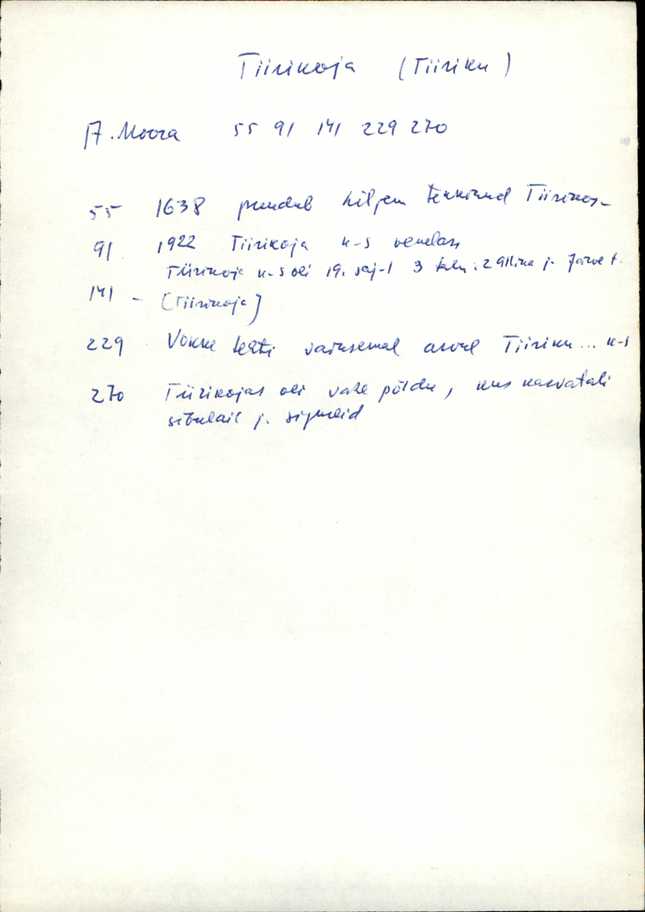 Tiirikoja (Tiiriku)
A. Moora 55 91 141 229 270
55 1638 puudub hiljem tekkinud Tiirikoj-
91 1922 Tiirikoja k-s venelasi
Tiirikoja k-s oli 19. saj-l 3 talu: j. Järve t.
141 - [Tiirikoja]
229 Vokke leiti vähesemal arvul Tiiriku... k-s
270 Tiirikojas oli vähe põldu, kus kasvatati
sibulaid j. sigureid